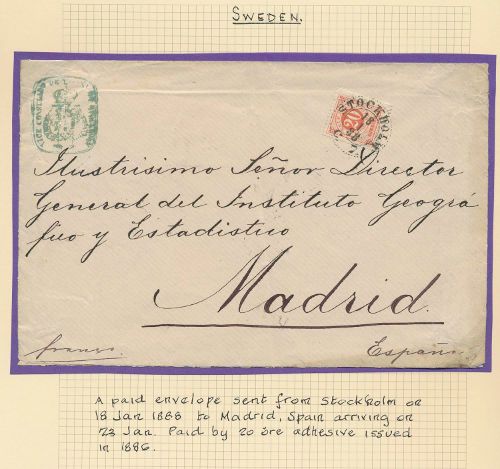 SWEDEN.
VICE CONSULADO DE
STOCKHOLM
18
20
88
Ilustrisimo Señor Director
General del Instituto Geográ
fico y Estadistico
Madrid.
franco.
España
A paid envelope sent from Stockholm on
18 Jan 1888 to Madrid, Spain arriving on
23 Jan. Paid by 20 öre adhesive issued
in 1886.